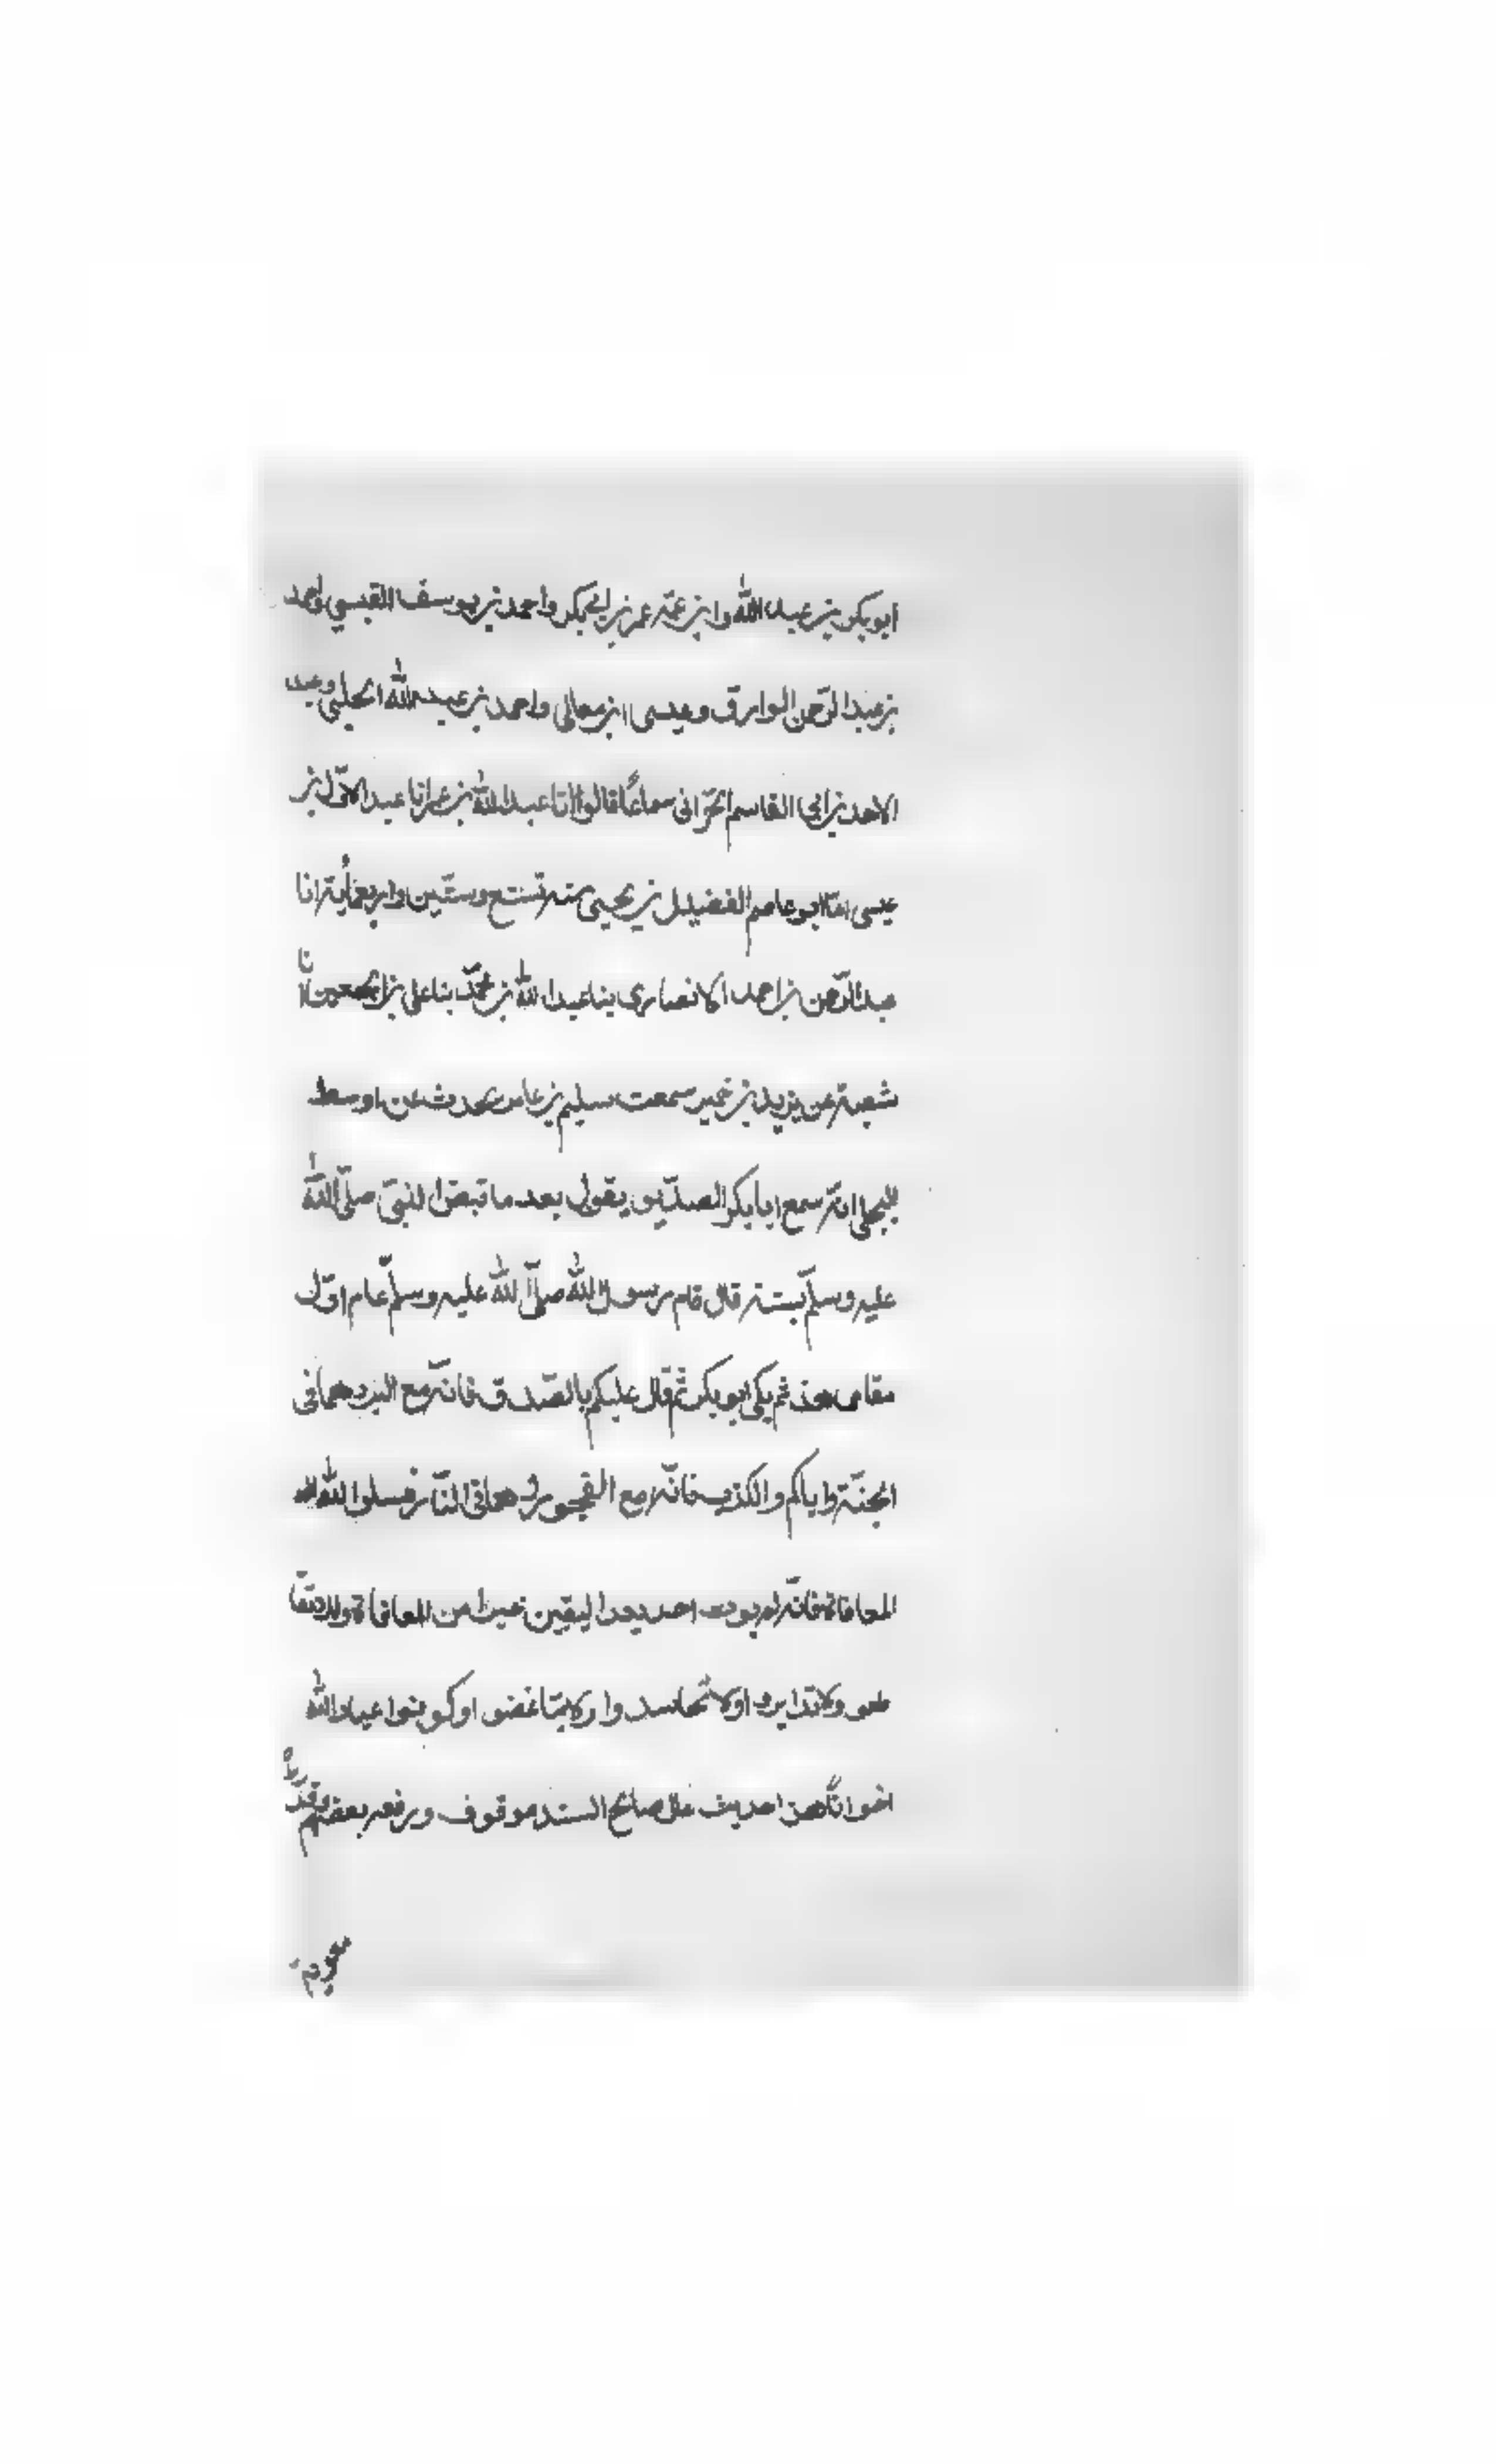 ابو بكر بن عبد الله وابن عمه عمر بن ابى بكر واحمد بن يوسف القيسي واحمد
بن عبد الرحمن الوارق وعيسى ابن معالى واحمد بن عبد الله الحلبي وعبد
الاحد بن ابى القاسم الحرّانى سماعًا قالوا انا عبد الله بن عمر انا عبد الاوّل بن
عيسى انا ابو عاصم الفضيل بن يحيى سنة تسع وستين واربعمأية انا
عبد الرحمن بن احمد الانصارى بنا عبد الله بن محمّد بنا على بن الجعد انا
شعبة عن يزيد بن خمير سمعت سليم بن عامر يحدث عن اوسط
البجلى انه سمع ابا بكر الصدّيق يقول بعد ما قبض النبىّ صلّى الله
عليه وسلّم بسنة قال قام رسول الله صلّى الله عليه وسلّم عام اوّل
مقامى هذ ثم بكى ابو بكر ثم قال عليكم بالصّدق فانّه مع البر وهما فى
الجنّة واياكم والكذب فانّه مع الفجور وهما فى النّار وسلوا الله
المعافاة فانّه لم يوت احد بعد اليقين خيرا من المعافاة ولا تقا
طعو ولا تدابروا ولا تحاسدوا ولا تباغضوا وكونوا عباد الله
اخوانًا هذ احديث عال صالح السند موقوف ورفعه بعضهم وقد رواه